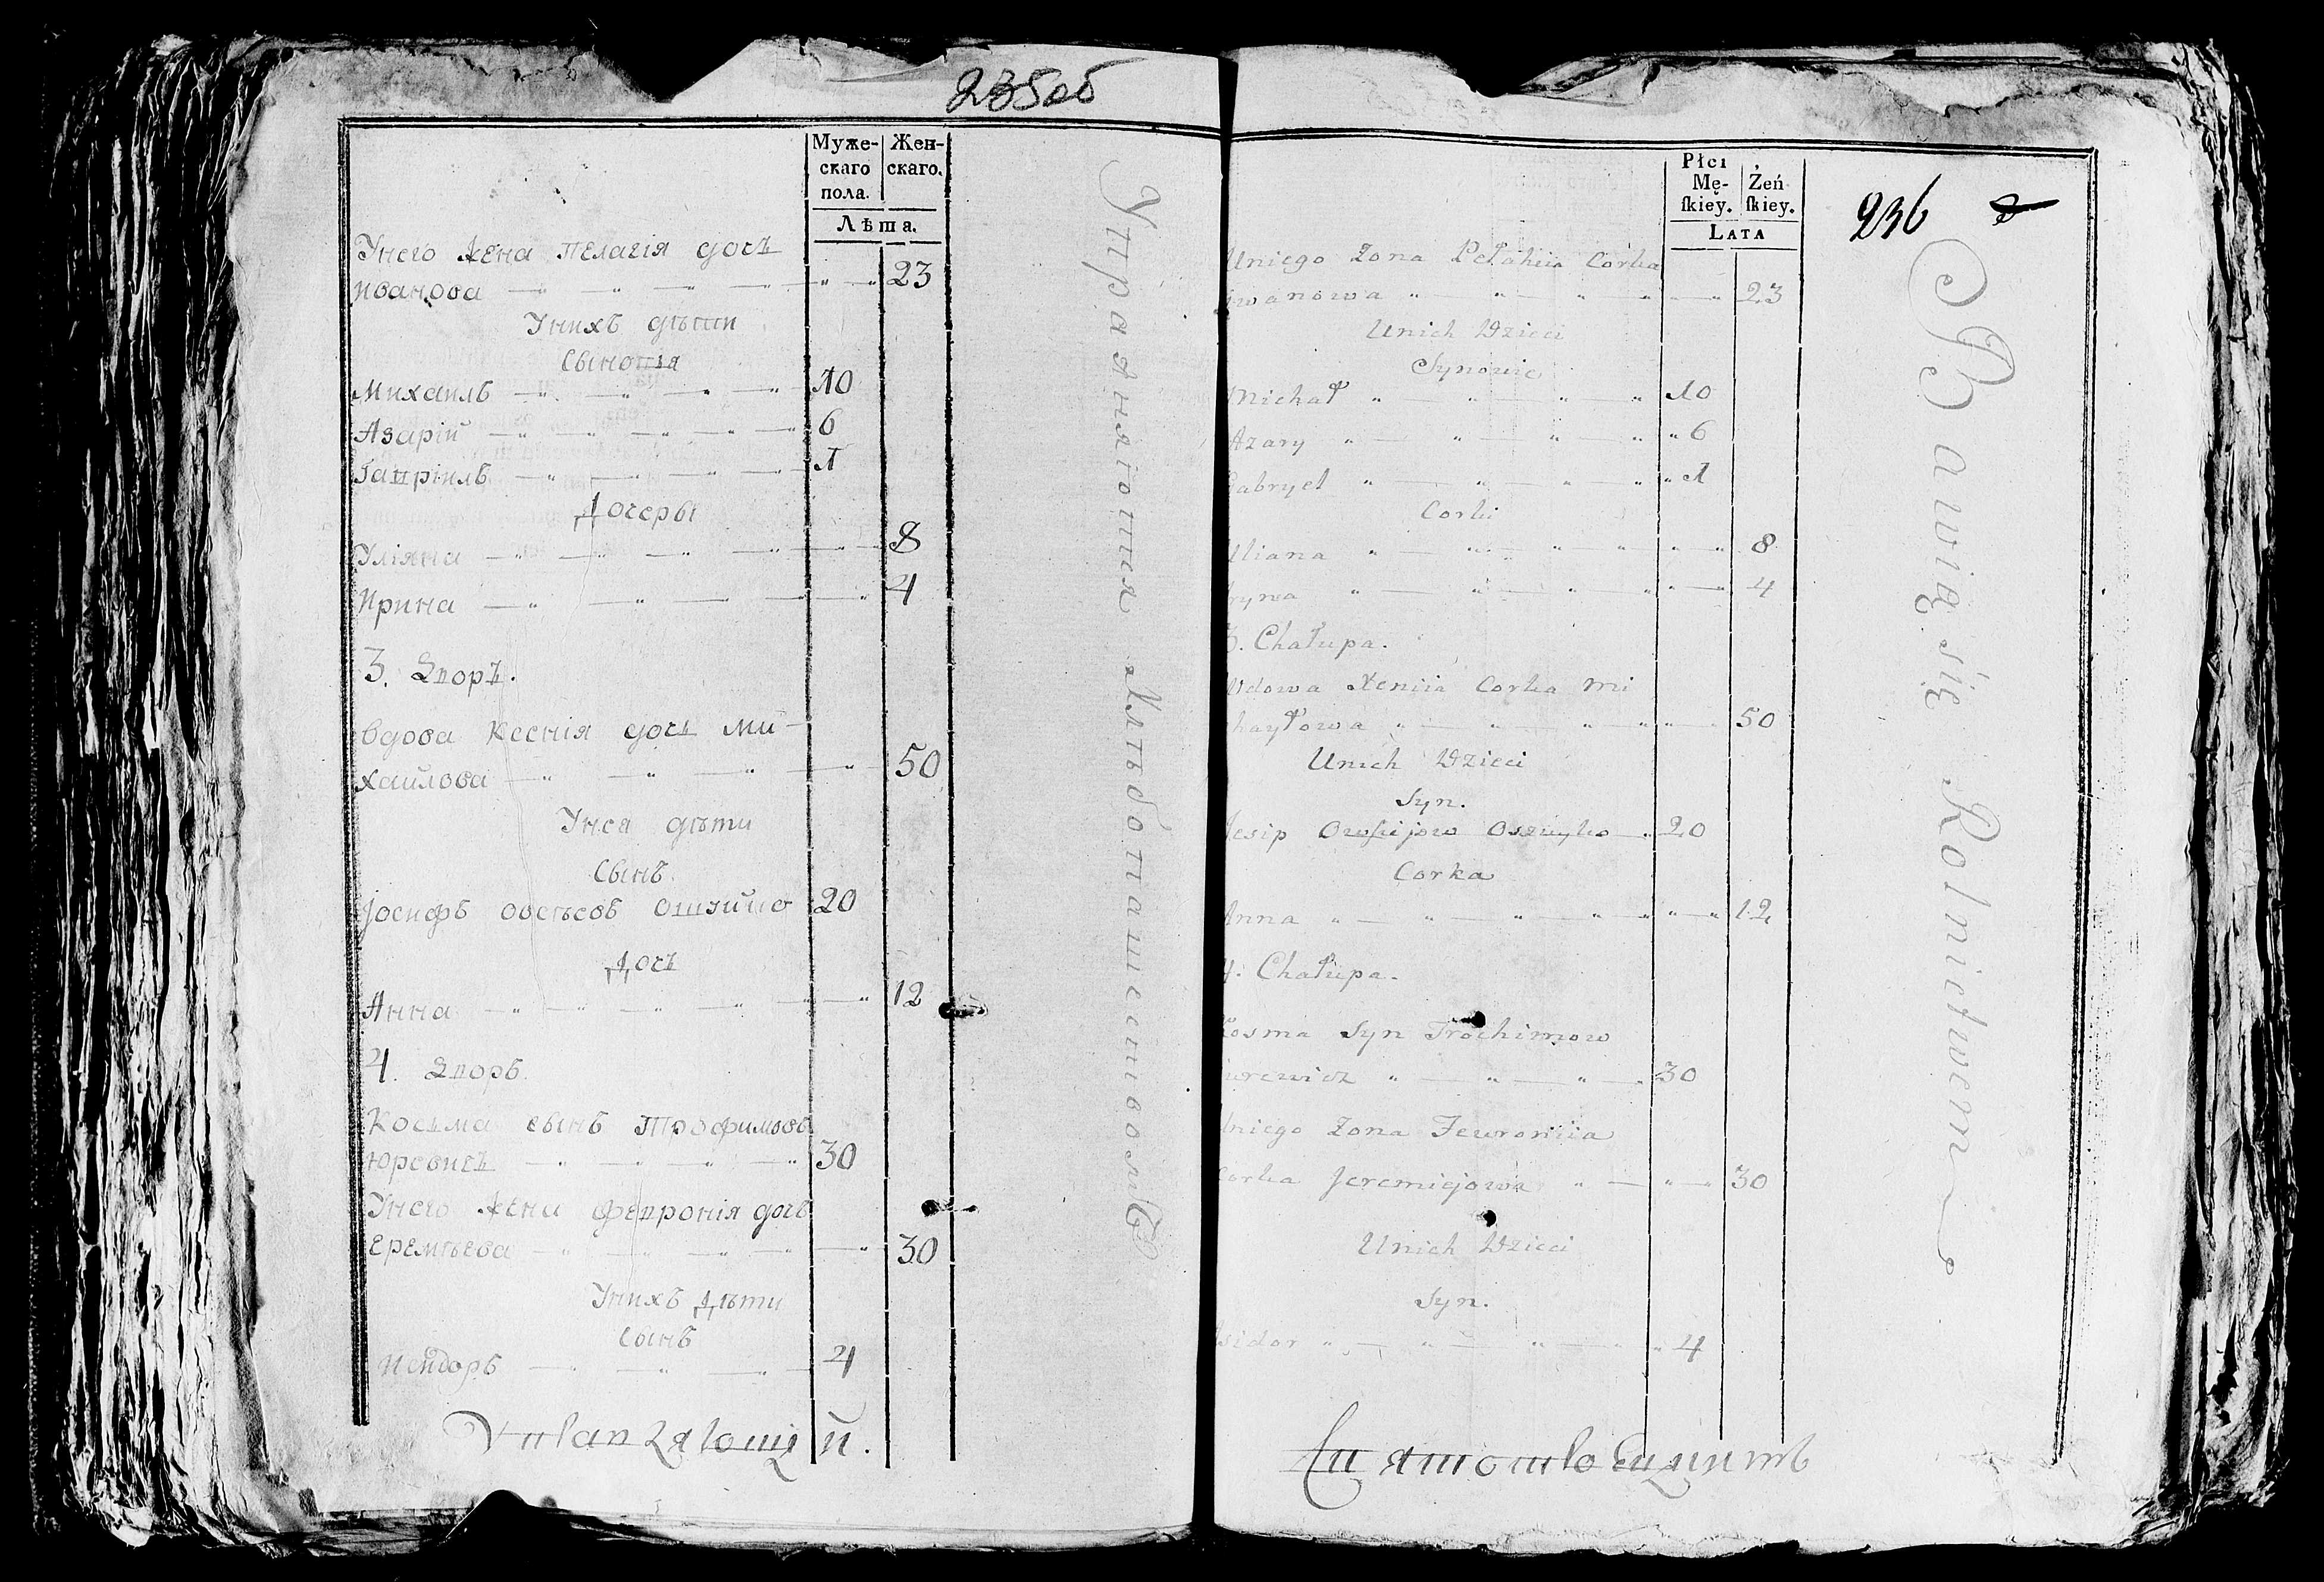 235об
Муже-
скаго
пола.
Жен-
скаго.
Лѣта.
Унего жена пелагія дочь
иванова 23
Унихъ дѣти
Сыновья
Михаилъ 10
Азарій 6
Гавріилъ 1
Дочеры
Уліяна 8
Ирина 4
3. Дворъ.
Вдова Ксенія дочь Ми-
хайлова 50
Унея дѣти
Сынъ
Іосифъ овсѣевъ 20
Дочь
Анна 12
4. Дворъ
Косьма сынъ Трофимовъ
Юревичъ 30
Унего жена февронія дочь
еремѣева 30
Унихъ Дѣти
Сынъ
Исидоръ 4
Упражняются хлѣбопашествомъ
236
Płci
Mę-
ſkiey.
Żeń
ſkiey.
LATA
Uniego Zona Pełahiia Corka
Iwanowa 23
Unich Dzieci
Synowie
Michał 10
Azary 6
Gabryel 1
Corki
Uliana 8
Iryna 4
3. Chałupa.
Wdowa Xeniia Corka Mi
chayłowa 50
Unich Dzieci
Syn.
Iesip Owsiejow 20
Corka
Anna 12
4. Chałupa.
Kosma Syn Trochimow
Jurewicz 30
Uniego Zona Fewroniia
Corka Jeremiejowa 30
Unich Dzieci
Syn.
Isidor 4
Bawią się Rolnictwem